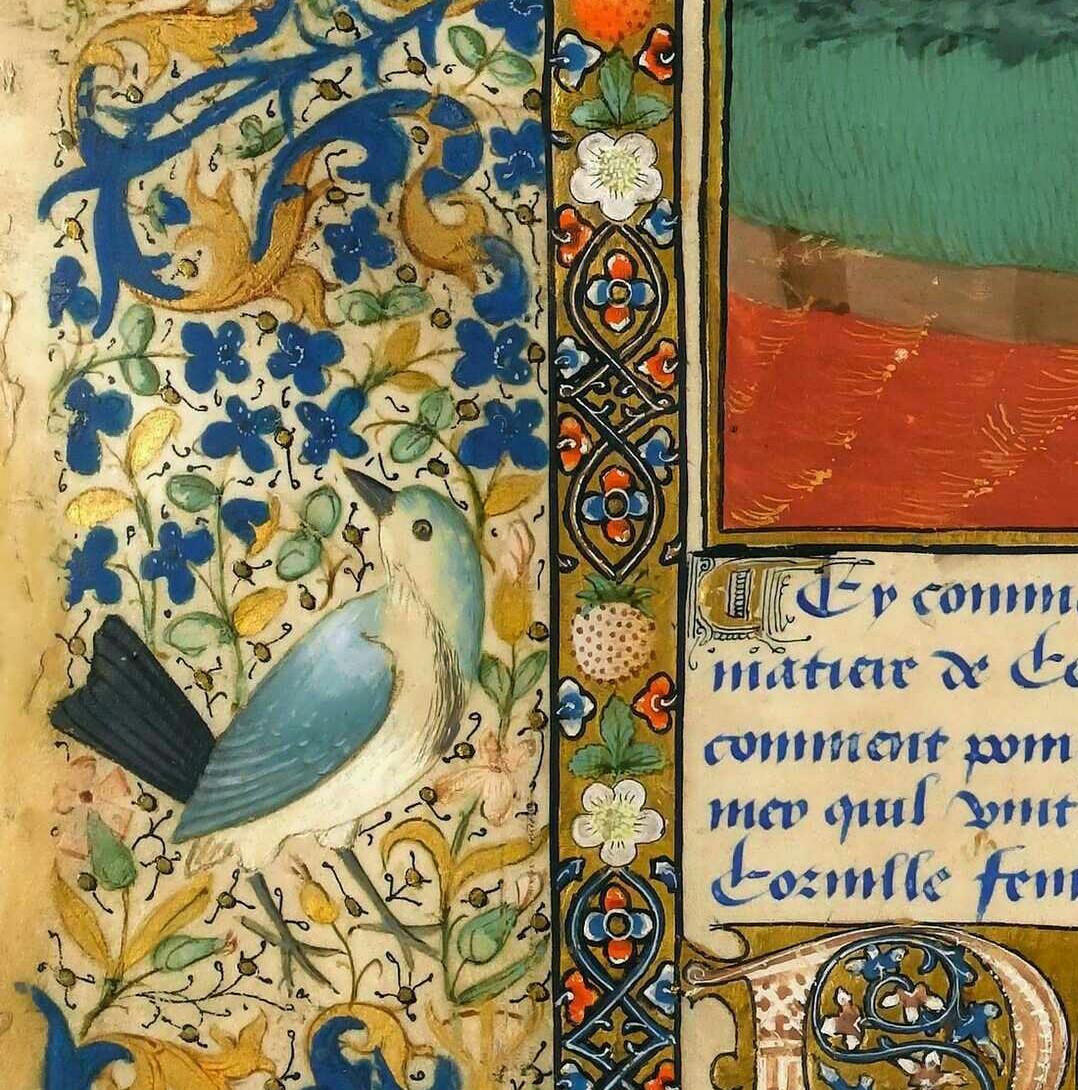 Cy comm
matiere de
comment pom
mer quil vint
Cornille fem